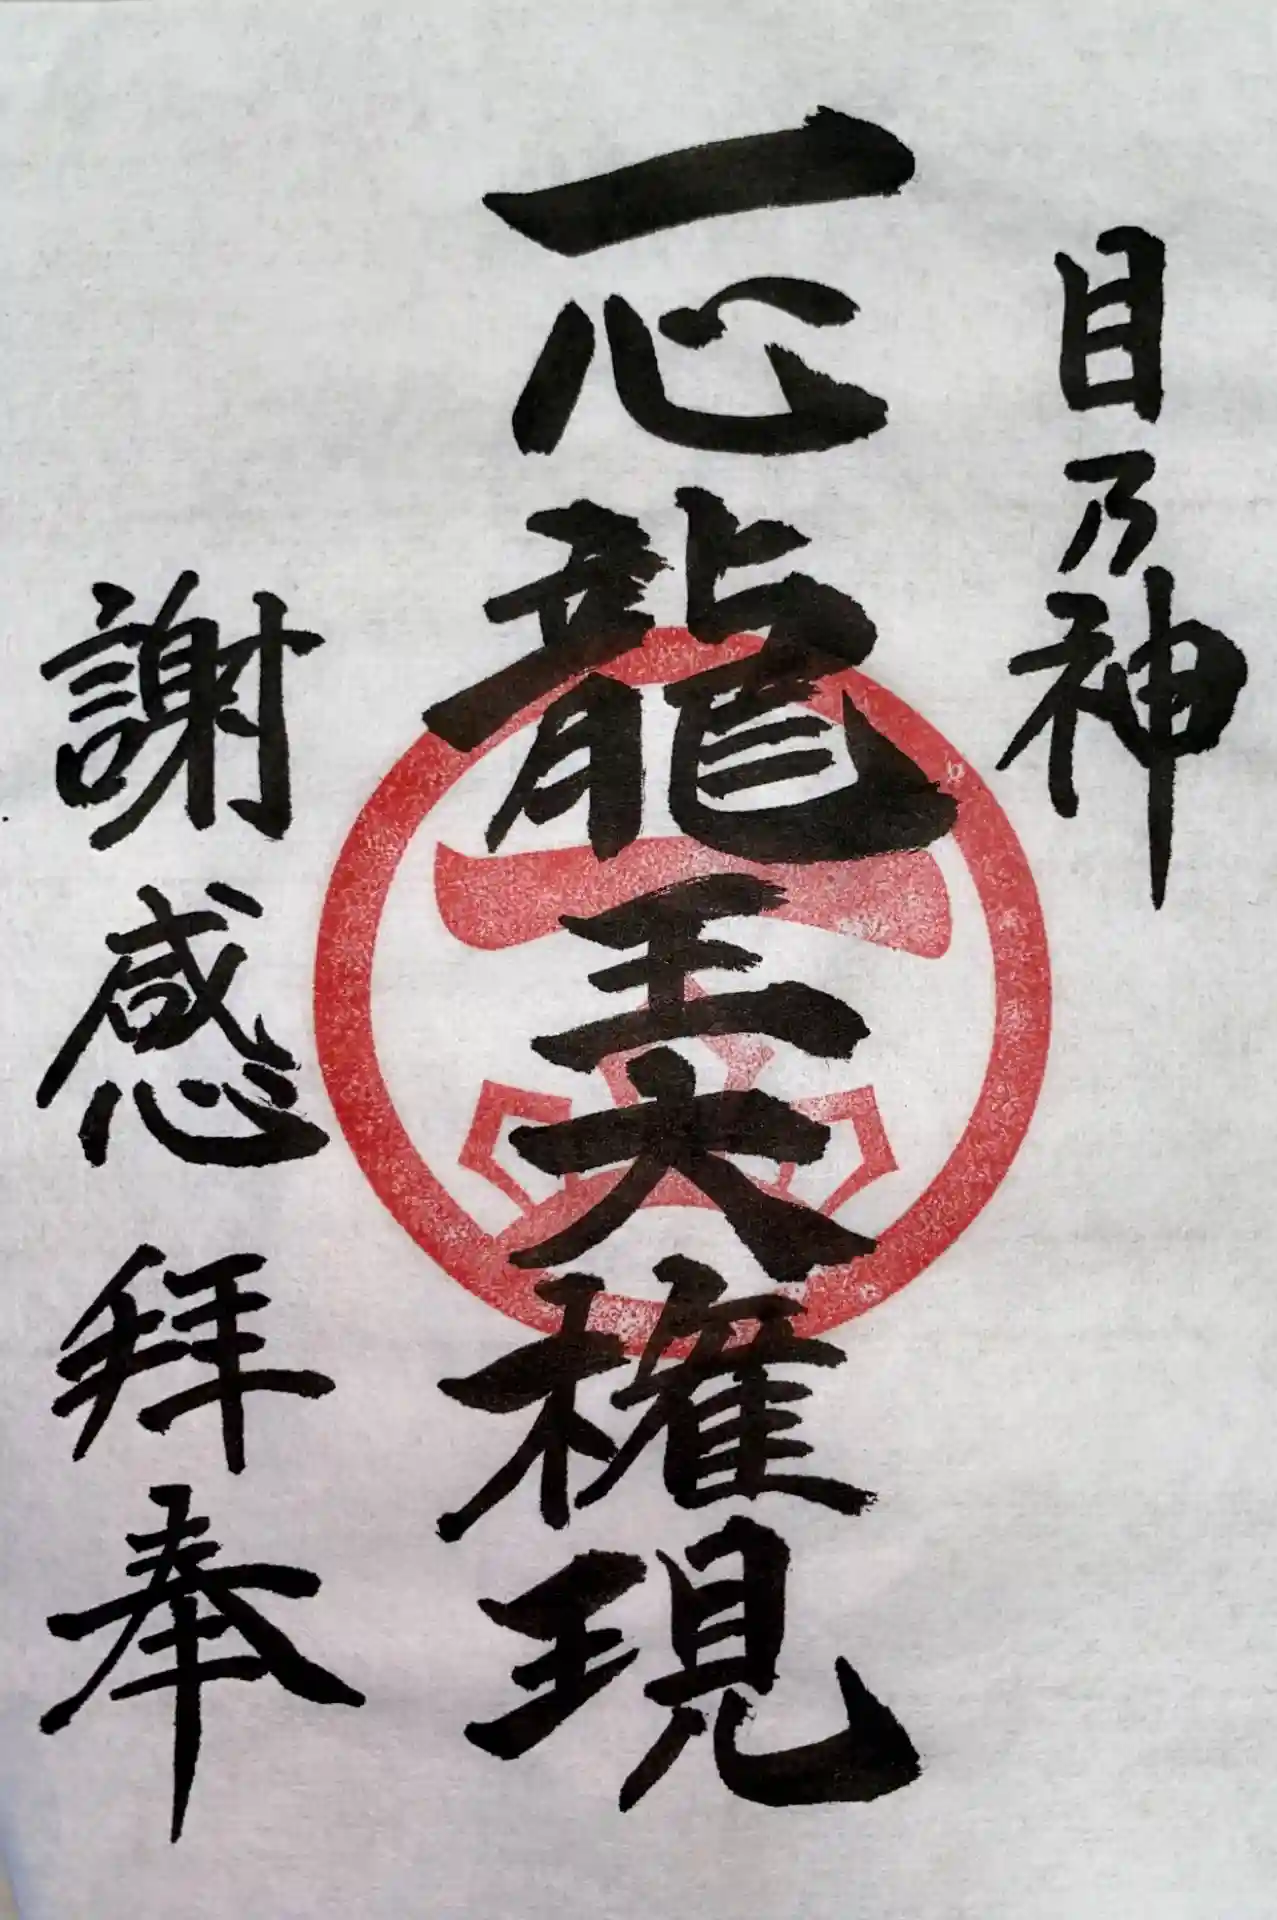 目乃神
一心龍王大権現
謝感拝奉